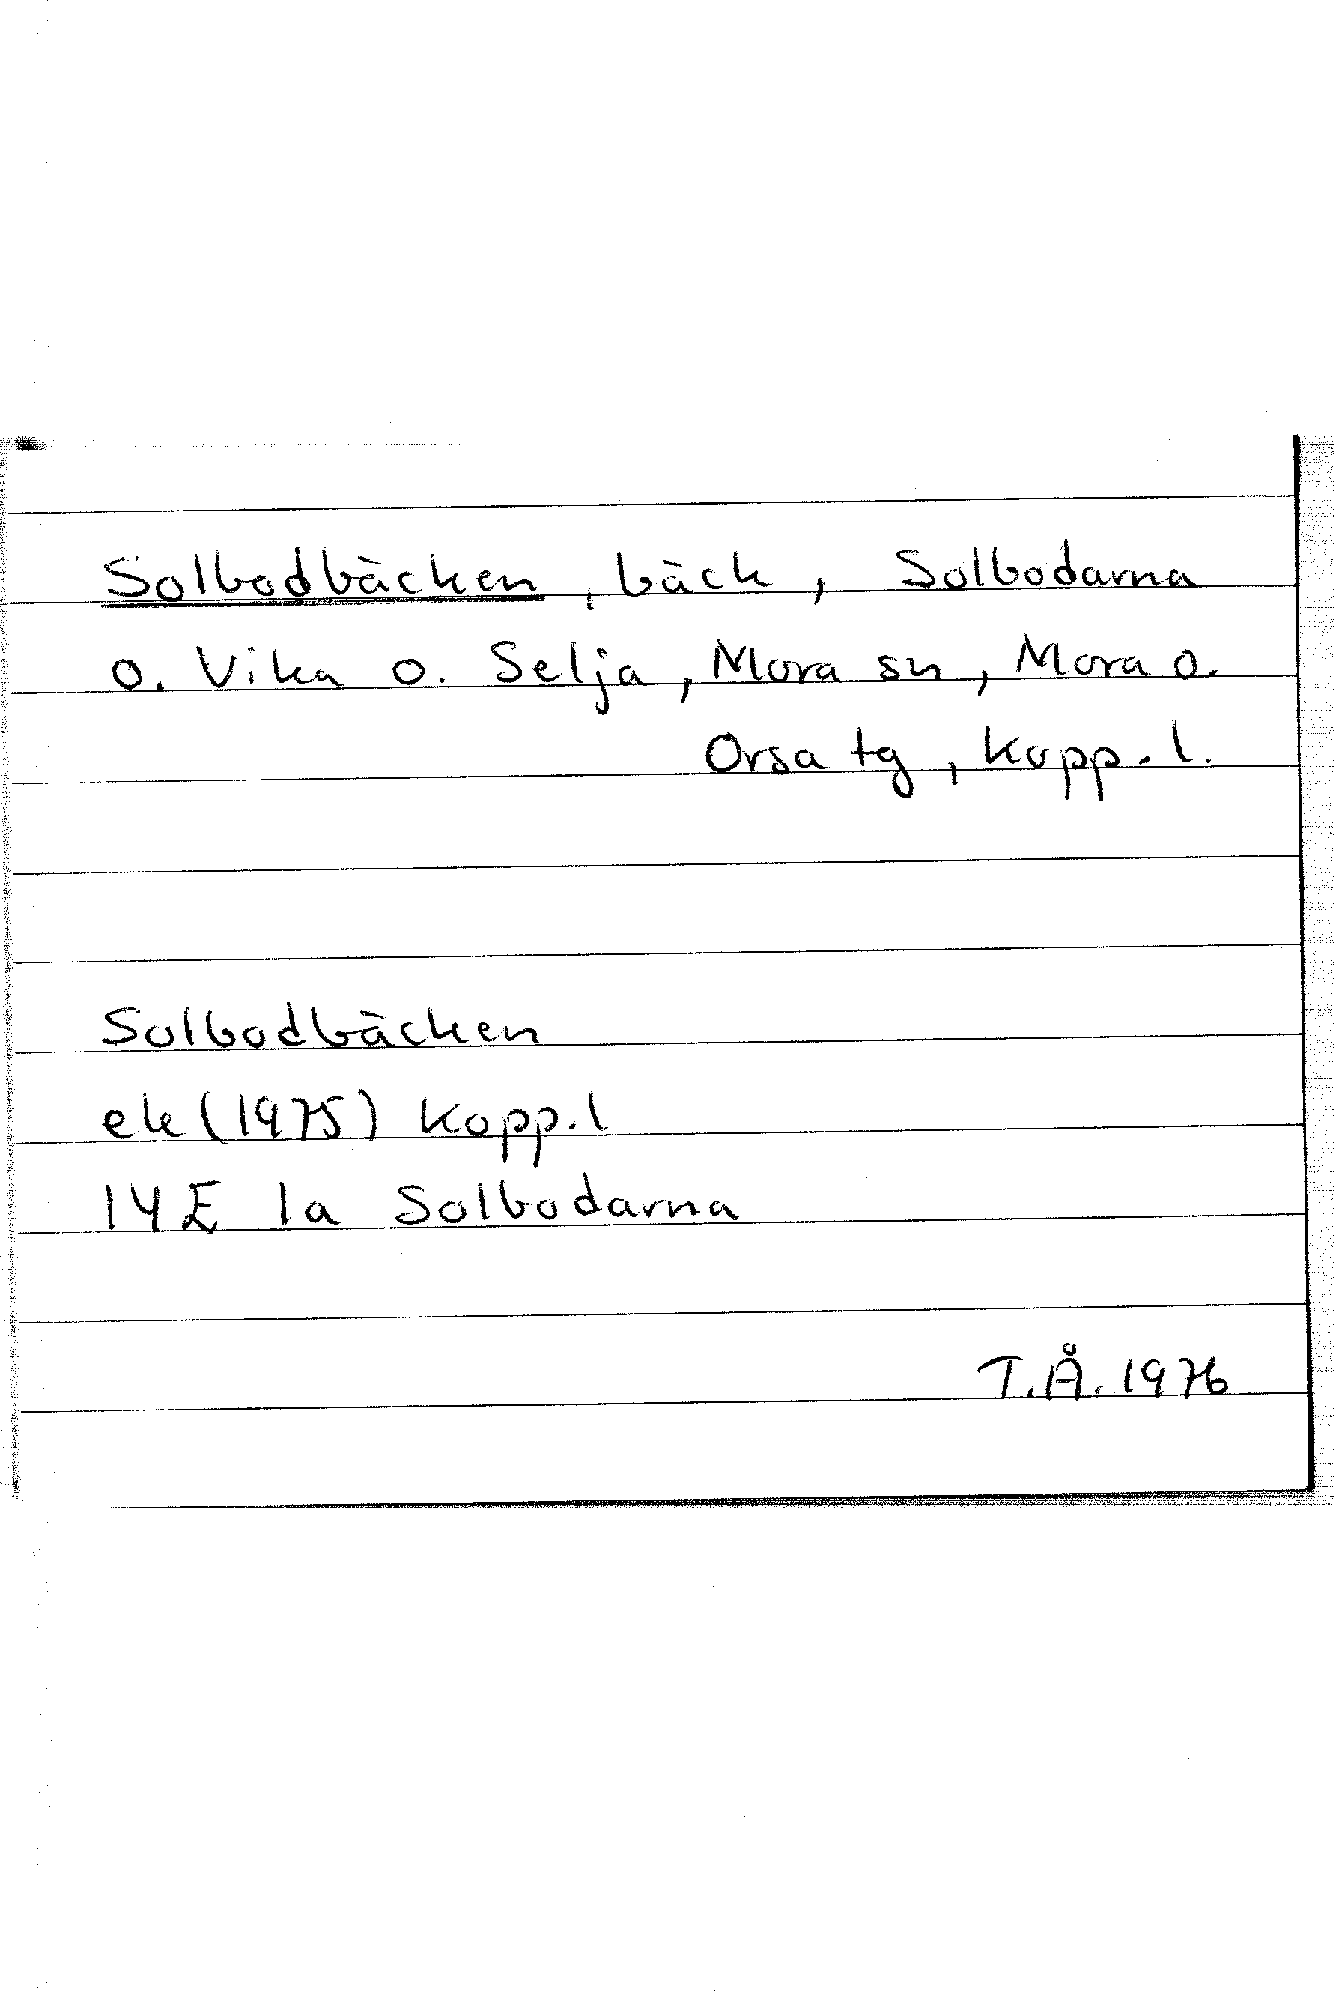 Solbodbäcken, bäck, Solbodarna
o. Vika o. Selja, Mora sn, Mora o.
Orsa tg, Kopp. l.
Solbodbäcken
ek (1975) Kopp. l
14E 1a Solbodarna
T.Å. 1976